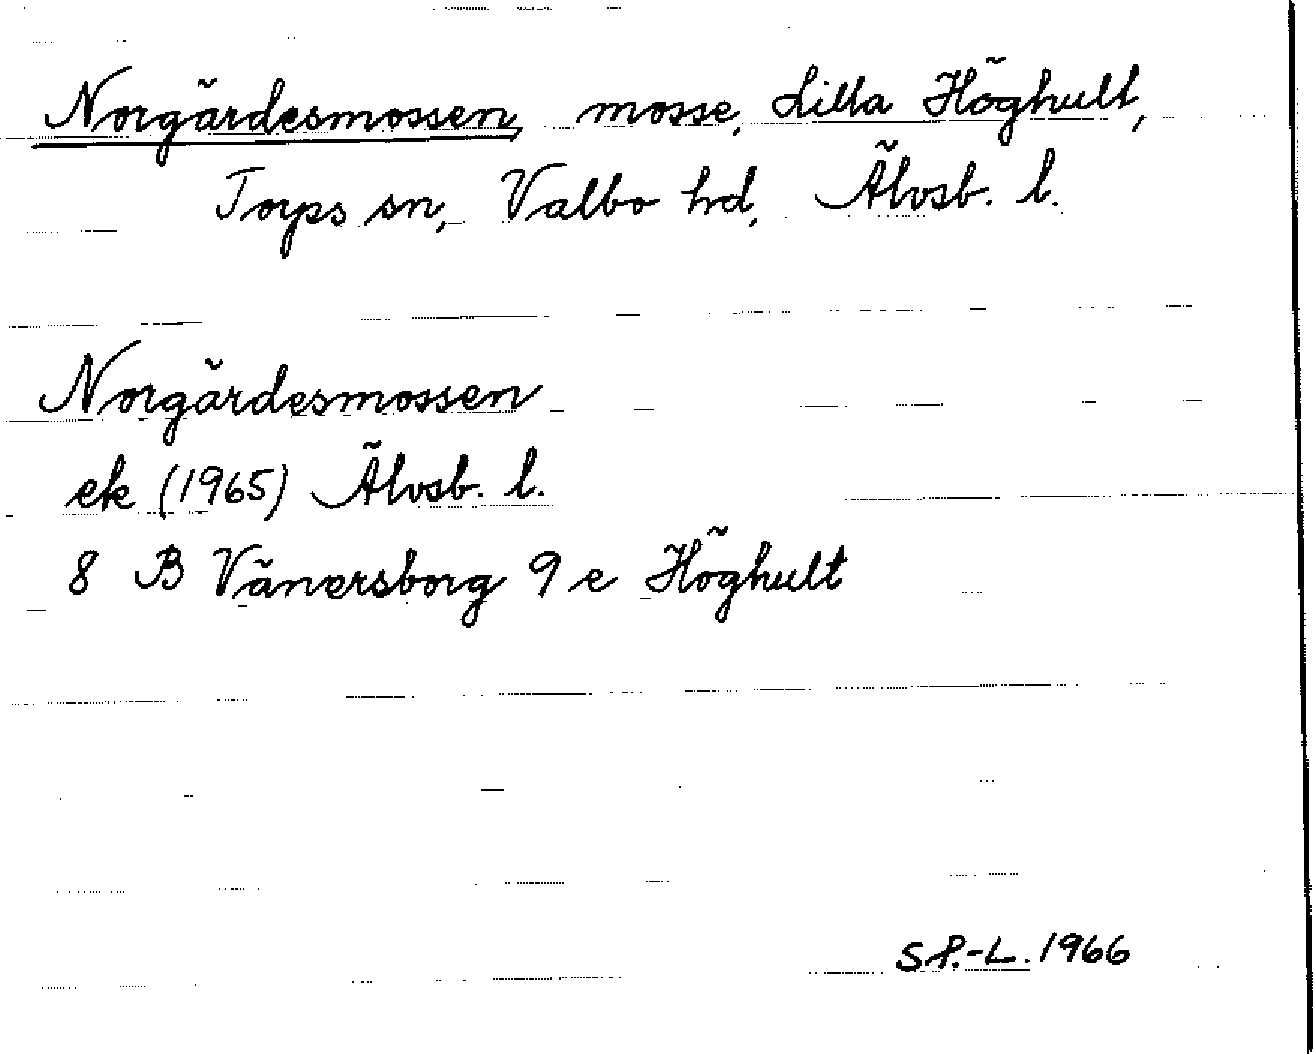 Norgärdesmossen, mosse, Lilla Höghult,
Torps sn, Valbo hd, Älvsb. l.
Norgärdesmossen
ek (1965) Älvsb. l.
8 B Vänersborg 9 e Höghult
S P.-L. 1966